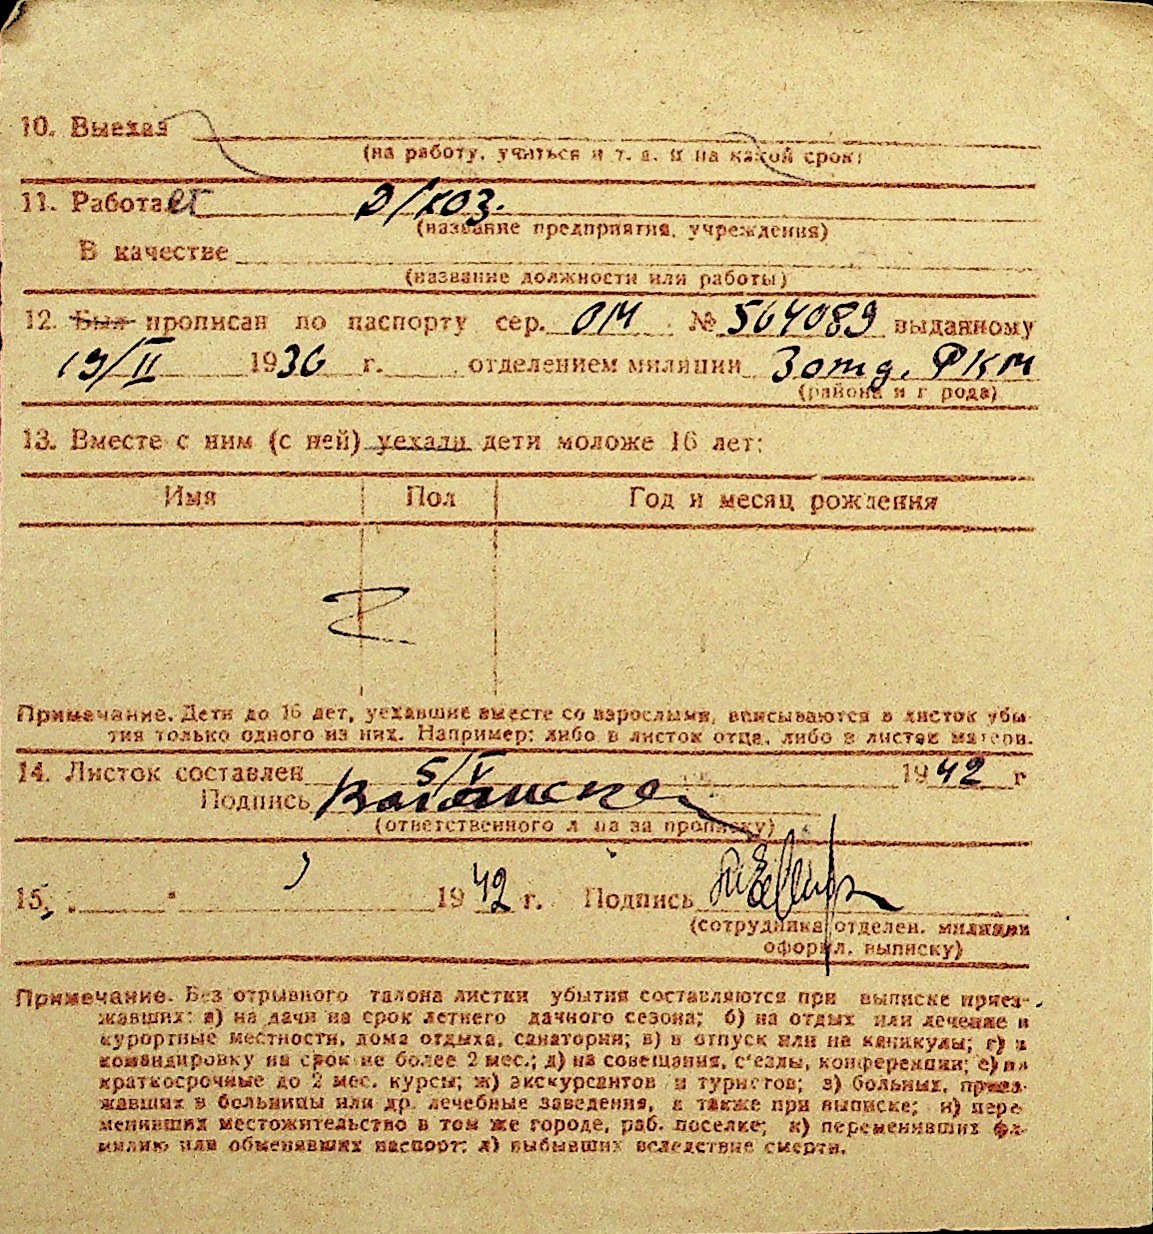 10. Выехал
(на работу, учиться и т. д. и на какой срок)
11. Работает Д/хоз.
(название предприятия, учреждения)
В качестве
(название должности или работы)
12. Был прописан по паспорту сер. ОМ № 564089 выданному
19/II 1936 г. отделением милиции 3 отд. РКМ
(района и города)
13. Вместе с ним (с ней) уехали дети моложе 16 лет:
Имя Пол Год и месяц рождения
Примечание. Дети до 16 лет, уехавшие вместе со взрослыми, вписываются в листок убы-
тия только одного из них. Например: либо в листок отца, либо в листок матери.
14. Листок составлен 5/V 1942 г
Подпись
(ответственного лица за прописку)
15. „ " 1942 г. Подпись
(сотрудника отделен. милиции
оформ. выписку)
Примечание. Без отрывного талона листки убытия составляются при выписке приез-
жавших: а) на дачи на срок летнего дачного сезона; б) на отдых или лечение в
курортные местности, дома отдыха, санатории; в) в отпуск или на каникулы; г) в
командировку на срок не более 2 мес.; д) на совещания, с'езды, конференции; е) на
краткосрочные до 2 мес. курсы; ж) экскурсантов и туристов; з) больных, приез-
жавших в больницы или др. лечебные заведения, а также при выписке; и) пере-
менивших местожительство в том же городе, раб. поселке; к) переменивших фа-
милию или обменявших паспорт; л) выбывших вследствие смерти.